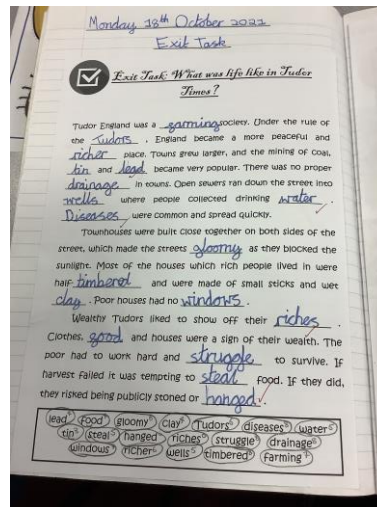 Monday 18th October 2021
Exit Task
Exit Task: What was life like in Tudor
Times?
Tudor England was a farming society. Under the rule of
the Tudors, England became a more peaceful and
richer place. Towns grew larger, and the mining of coal,
tin and lead became very popular. There was no proper
drainage in towns. Open sewers ran down the street into
wells where people collected drinking water.
Diseases were common and spread quickly.
Townhouses were built close together on both sides of the
street, which made the streets gloomy as they blocked the
sunlight. Most of the houses which rich people lived in were
half timbered and were made of small sticks and wet
clay. Poor houses had no windows.
Wealthy Tudors liked to show off their riches.
Clothes, food and houses were a sign of their wealth. The
poor had to work hard and struggle to survive. If
harvest failed it was tempting to steal food. If they did,
they risked being publicly stoned or hanged.
lead food gloomy clay Tudors diseases water
tin steal hanged riches struggle drainage
windows richer wells timbered farming